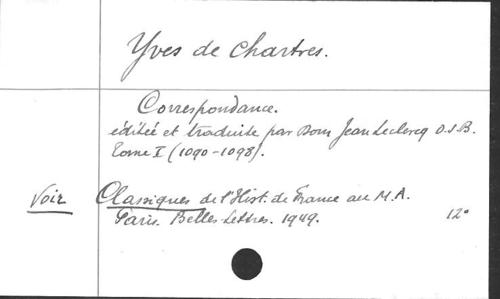 Yves de Chartres.
Correspondance.
éditée et traduite par Dom Jean Leclercq O.S.B.
Tome I (1090-1098).
Voir Classiques de l'Hist. de France au M.A.
Paris. Belles-Lettres. 1949. 12°